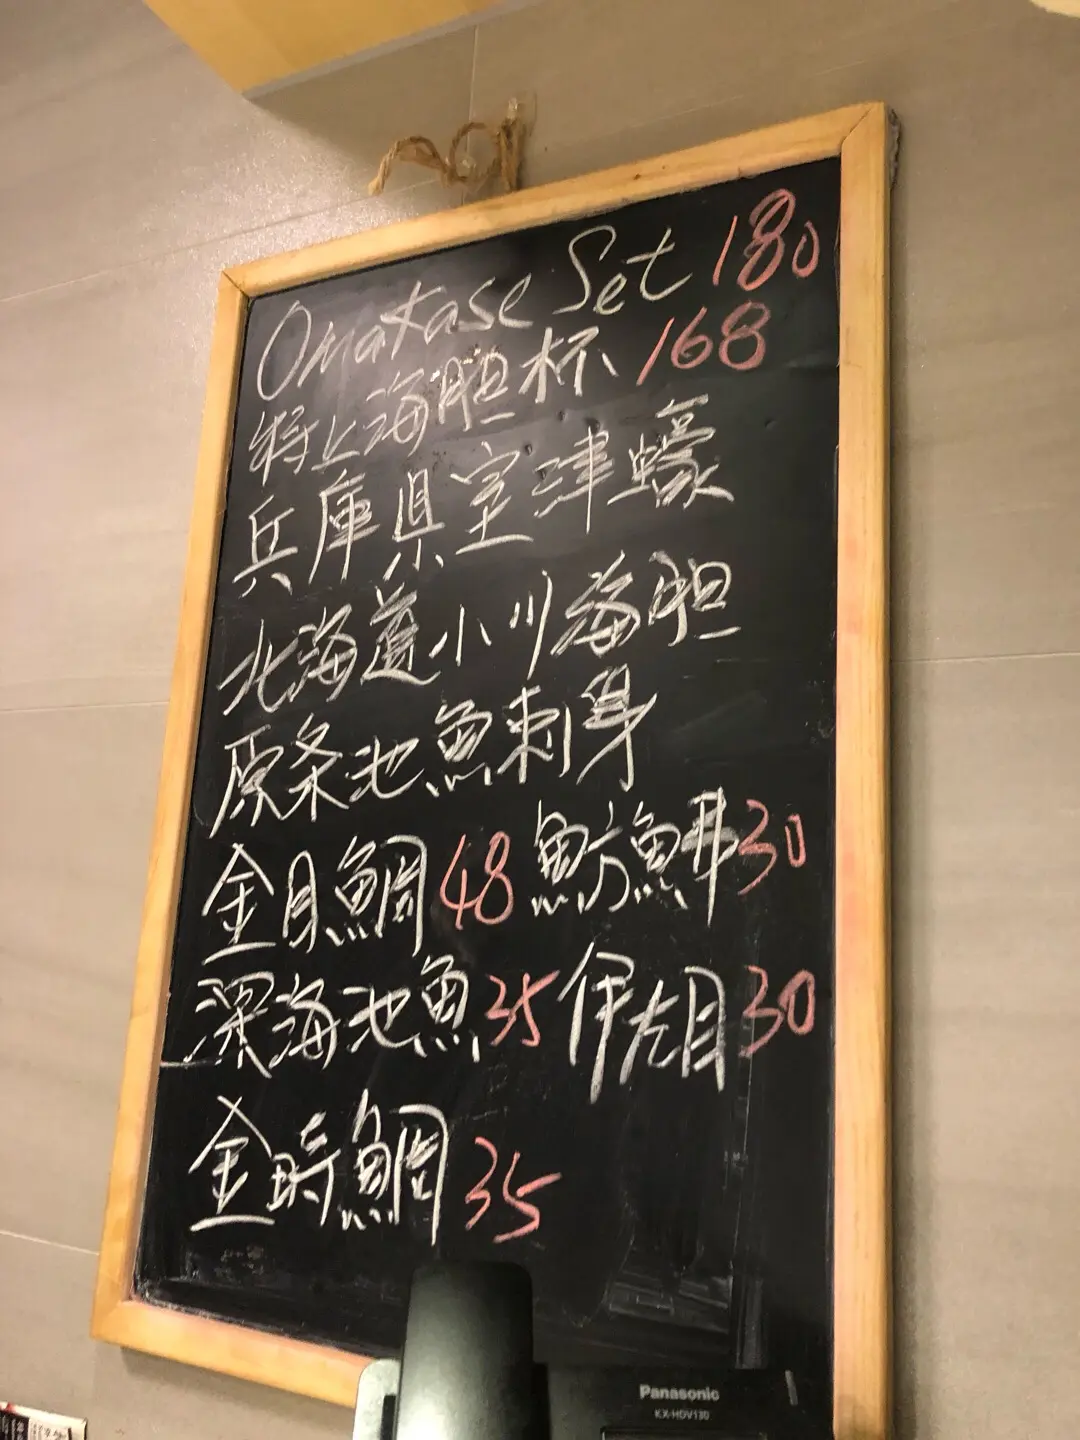 Omakase Set 180
特上海胆杯 168
兵庫県室津蠔
北海道小川海胆
原条池魚刺身
金目鯛 48 魴鮄 30
深海池魚 35 伊左目 30
金時鯛 35
Panasonic
KX-HDV130